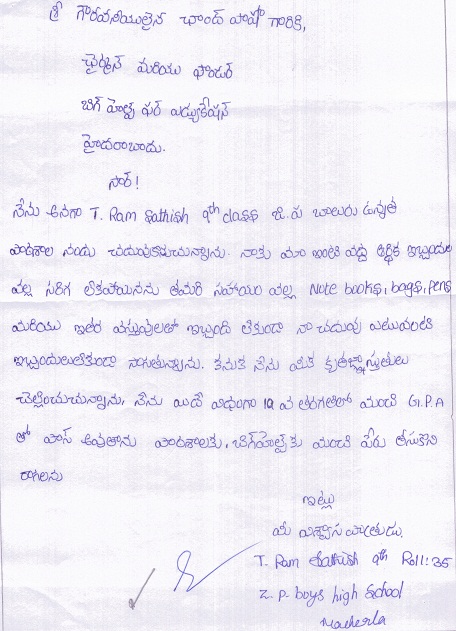 శ్రీ గౌరవనీయులైన చాంద్ పాషా గారికి,
ఛైర్మన్ మరియు ఫౌండర్
బిగ్ హెల్ప్ ఫర్ ఎడ్యుకేషన్
హైదరాబాదు.
సార్!
నేను అనగా T. Ram Sathish 9th class జి.ప బాలురు ఉన్నత
పాఠశాల నందు చదువుకొనుచున్నాను. నాకు మా ఇంటి వద్ద ఆర్థిక ఇబ్బందుల
వల్ల సరిగ లేకపోయినను తమరి సహాయం వల్ల Note books, bags, pens
మరియు ఇతర వస్తువులతో ఇబ్బంది లేకుండా నా చదువు ఎటువంటి
ఇబ్బందులులేకుండా సాగుతున్నాను. కనుక నేను మీకు కృతజ్ఞాస్తుతులు
చెల్లించుచున్నాను, నేను ఇదే విధంగా 10 వ తరగతిలో మంచి G.P.A
తో పాస్ అవుతాను పాఠశాలకు, బిగ్‌హెల్ప్ కు మంచి పేరు తీసుకొని
రాగలను
ఇట్లు
మీ విశ్వాస పాత్రుడు.
T. Ram Sathish 9th Roll: 35
Z. p. boys high School
Macherla